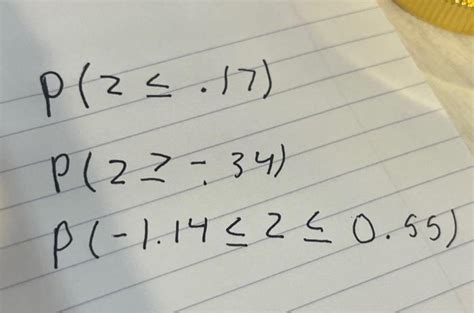 P(z ≤ .17)
P(z ≥ -.34)
P(-1.14 ≤ z ≤ 0.55)